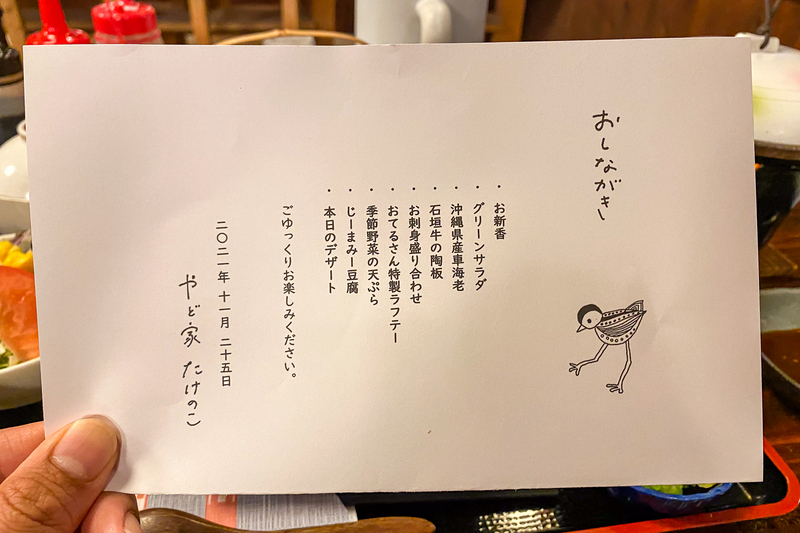 おしながき
・お新香
・グリーンサラダ
・沖縄県産車海老
・石垣牛の陶板
・お刺身盛り合わせ
・おてるさん特製ラフテー
・季節野菜の天ぷら
・じーまみー豆腐
・本日のデザート
ごゆっくりお楽しみください。
二〇二一年 十一月 二十五日
やど家 たけのこ